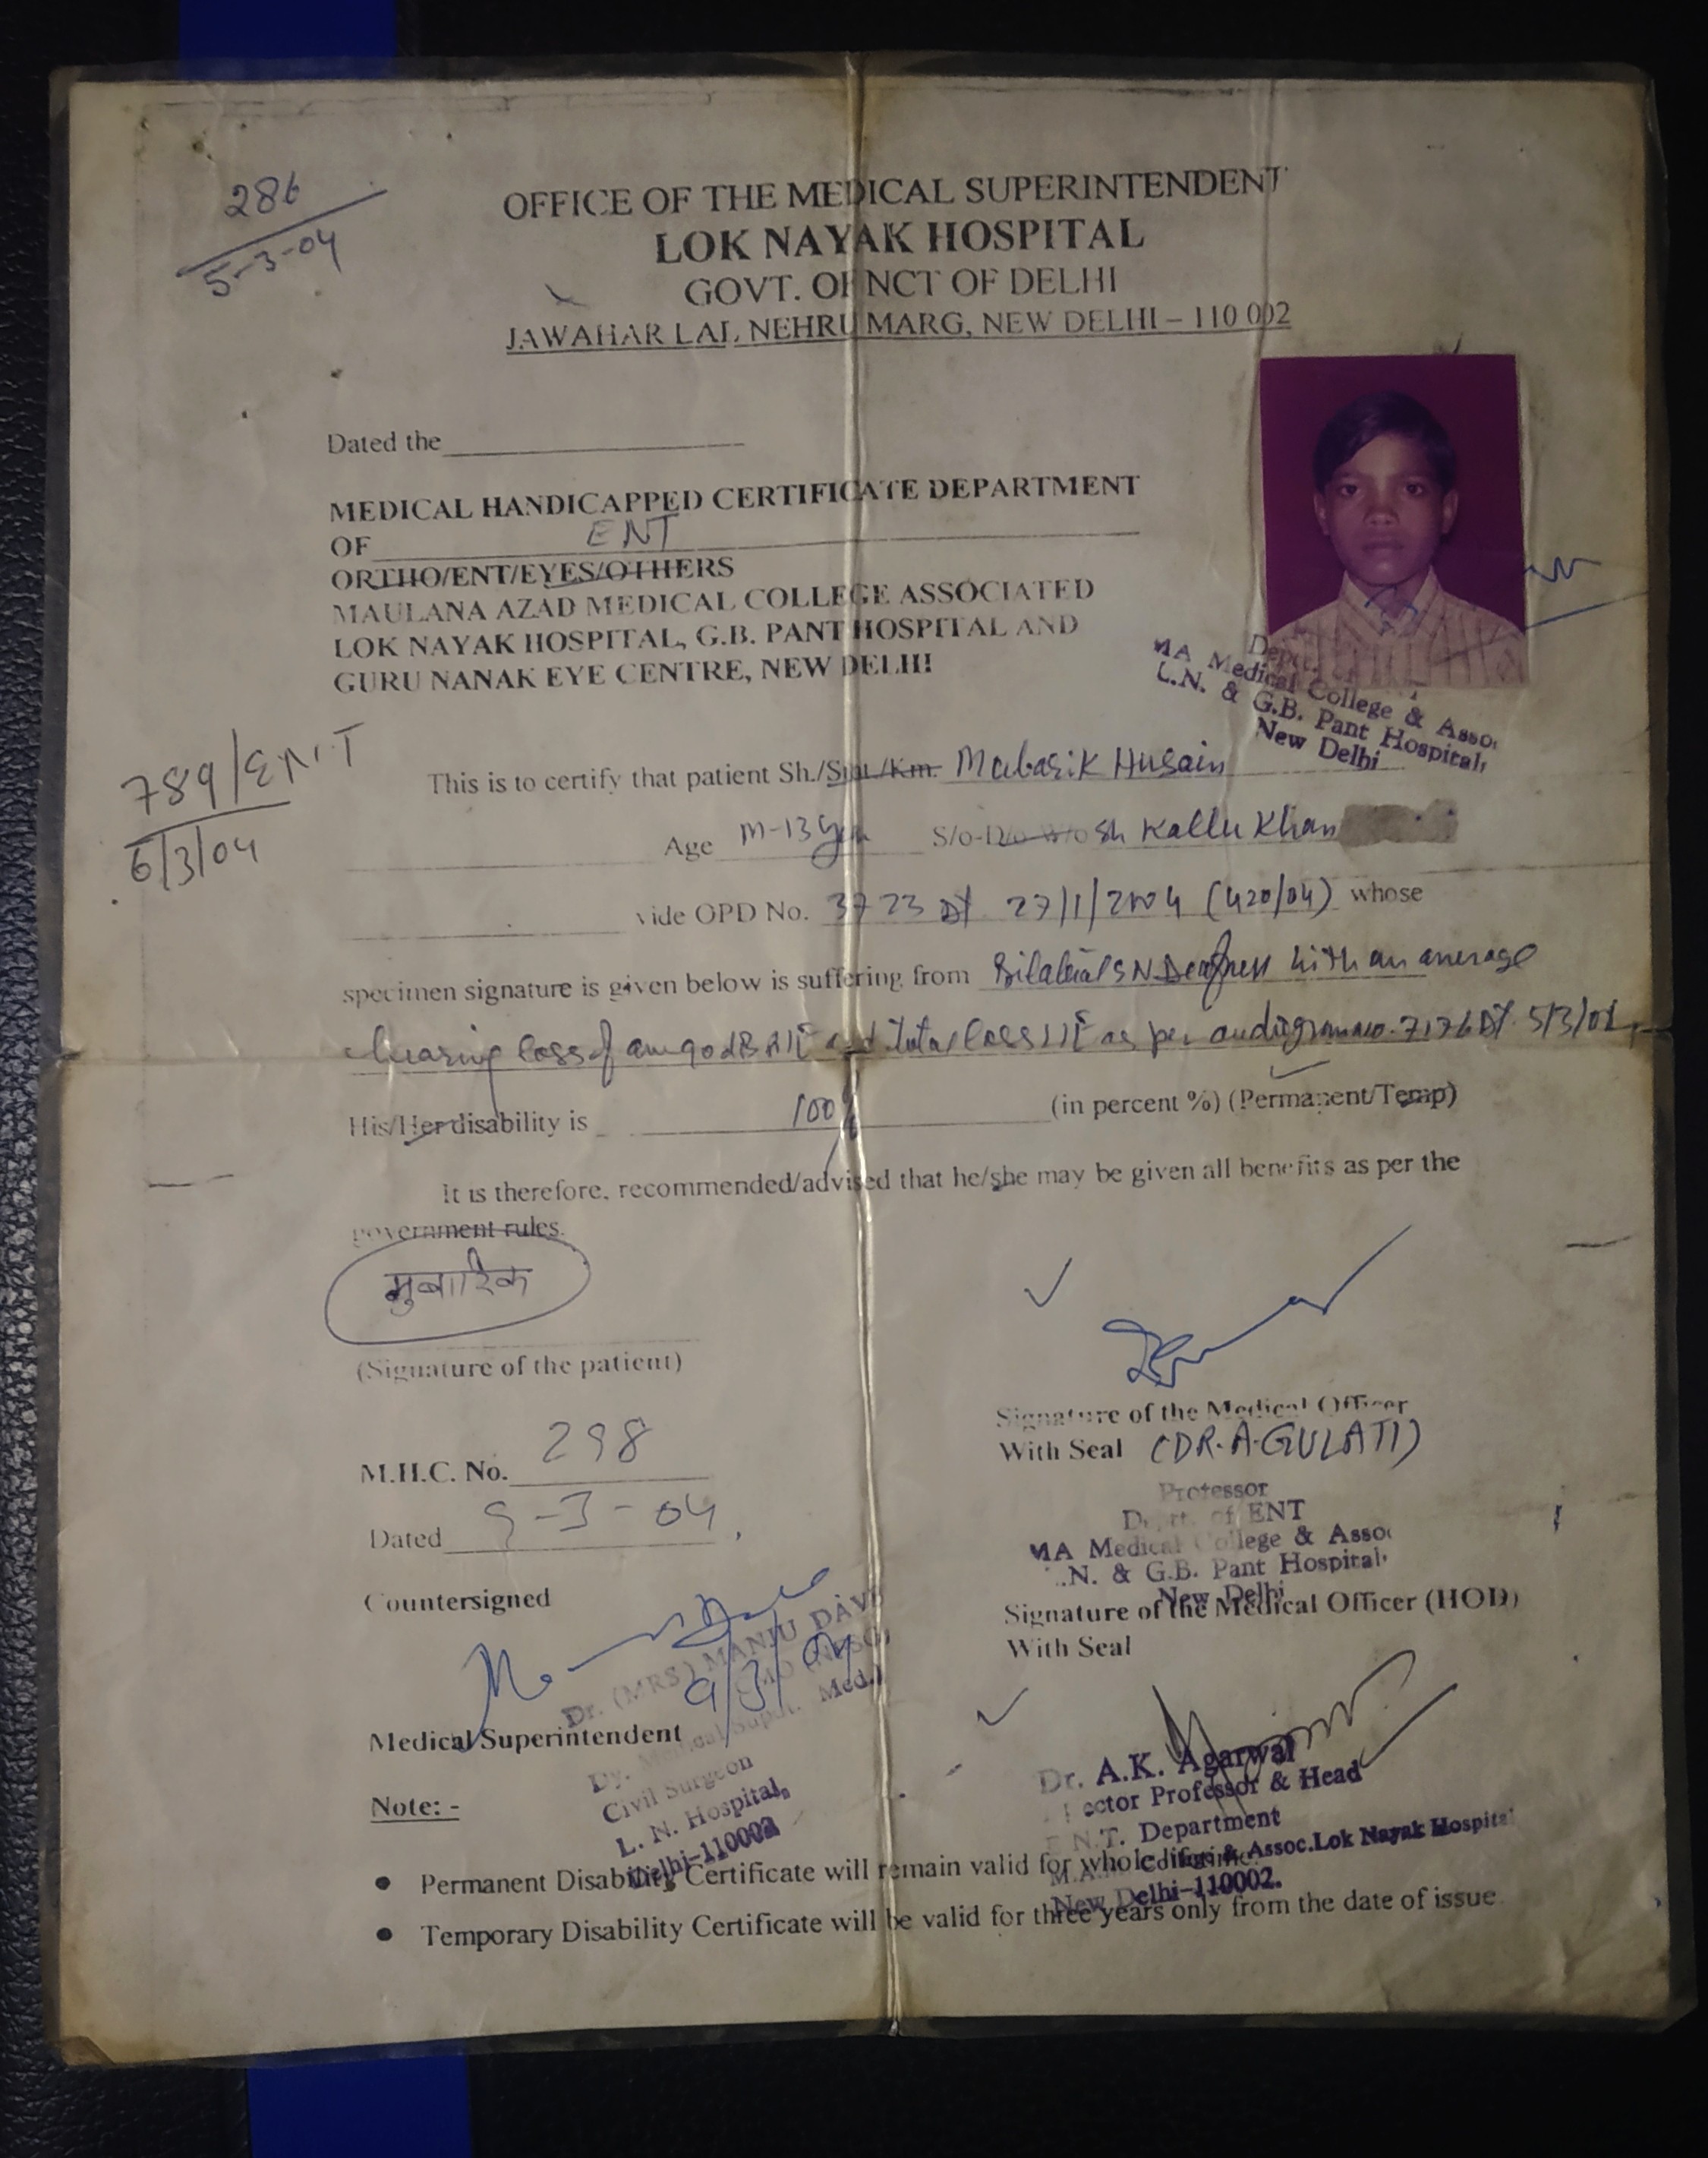 286
5-3-04
OFFICE OF THE MEDICAL SUPERINTENDENT
LOK NAYAK HOSPITAL
GOVT. OF NCT OF DELHI
JAWAHAR LAL NEHRU MARG, NEW DELHI – 110 002
Dated the
MEDICAL HANDICAPPED CERTIFICATE DEPARTMENT
OF ENT
ORTHO/ENT/EYES/OTHERS
MAULANA AZAD MEDICAL COLLEGE ASSOCIATED
LOK NAYAK HOSPITAL, G.B. PANT HOSPITAL AND
GURU NANAK EYE CENTRE, NEW DELHI
MA Medical College & Asso
L.N. & G.B. Pant Hospitals
New Delhi
789/ENT
6/3/04
This is to certify that patient Sh./Smt./Km. Mubarik Husain
Age M-13 S/o-D/o W/o Sh Kallu Khan
vide OPD No. 3723 Dt 27/1/2004 (420/04) whose
specimen signature is given below is suffering from Bilateral SN Deafness with an average
hearing loss of 90dB as per audiogram no. 7176 Dt. 5/3/04
His/Her disability is 100% (in percent %) (Permanent/Temp)
It is therefore, recommended/advised that he/she may be given all benefits as per the
government rules.
मुबारिक
(Signature of the patient)
Signature of the Medical Officer
With Seal (DR. A. GULATI)
Professor
Deptt. of ENT
MA Medical College & Asso
L.N. & G.B. Pant Hospital
New Delhi
M.H.C. No. 298
Dated 9-3-04
Countersigned
9/3/04
Dr. (MRS) MANJU DAVE
Medical Superintendent
Civil Surgeon
L. N. Hospital,
Delhi-110002
Signature of the Medical Officer (HOD)
With Seal
Dr. A.K. Agarwal
Professor & Head
E.N.T. Department
& Assoc. Lok Nayak Hospital
New Delhi-110002.
Note: -
• Permanent Disability Certificate will remain valid for whole life
• Temporary Disability Certificate will be valid for three years only from the date of issue